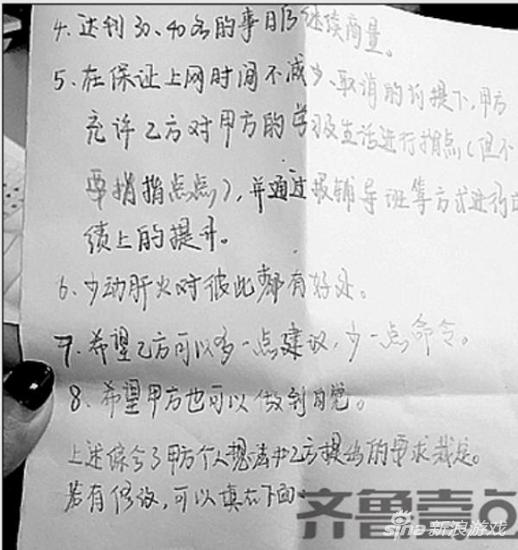 4、达到30、40名的事日后继续商量。
5、在保证上网时间不减少、取消的前提下,甲方
允许乙方对甲方的学习及生活进行指点(但不
要指指点点),并通过报辅导班等方式进行成
绩上的提升。
6、少动肝火对彼此都有好处。
7、希望乙方可以多一点建议,少一点命令。
8、希望甲方也可以做到自觉。
上述综合了甲方个人想法和乙方提出的要求裁定。
若有修改,可以填在下面。
齐鲁壹点
sina新浪游戏